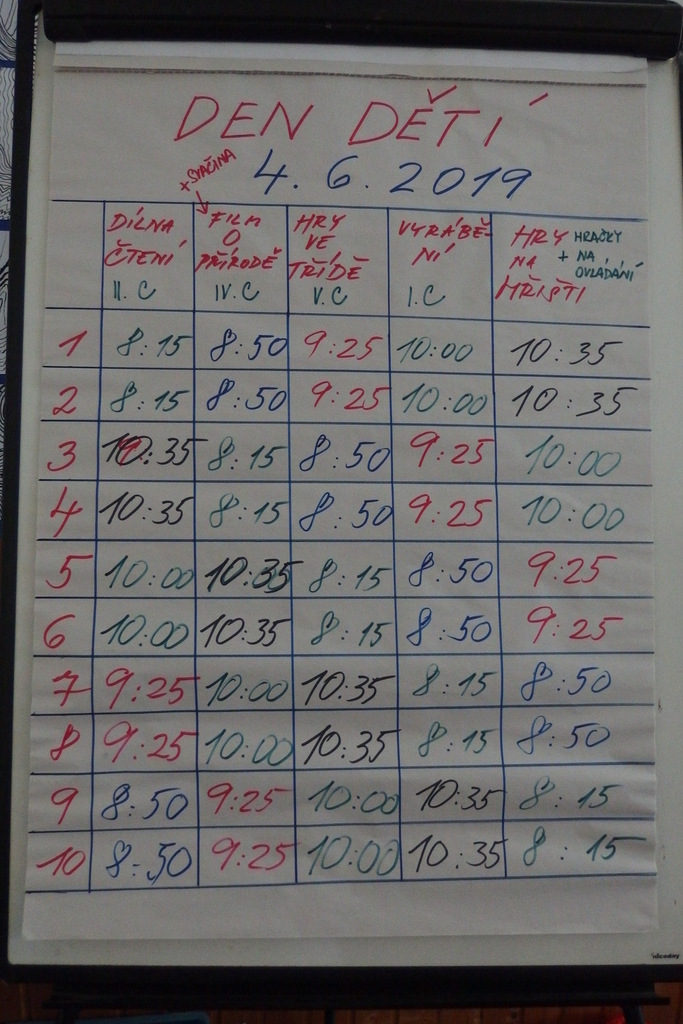 DEN DĚTÍ
+ SVAČINA
4. 6. 2019
DÍLNA ČTENÍ II. C
FILM O PŘÍRODĚ IV. C
HRY VE TŘÍDĚ V. C
VYRÁBĚ- NÍ I. C
HRY NA HŘIŠTI + HRAČKY NA OVLÁDÁNÍ
1 8:15 8:50 9:25 10:00 10:35
2 8:15 8:50 9:25 10:00 10:35
3 10:35 8:15 8:50 9:25 10:00
4 10:35 8:15 8:50 9:25 10:00
5 10:00 10:35 8:15 8:50 9:25
6 10:00 10:35 8:15 8:50 9:25
7 9:25 10:00 10:35 8:15 8:50
8 9:25 10:00 10:35 8:15 8:50
9 8:50 9:25 10:00 10:35 8:15
10 8:50 9:25 10:00 10:35 8:15